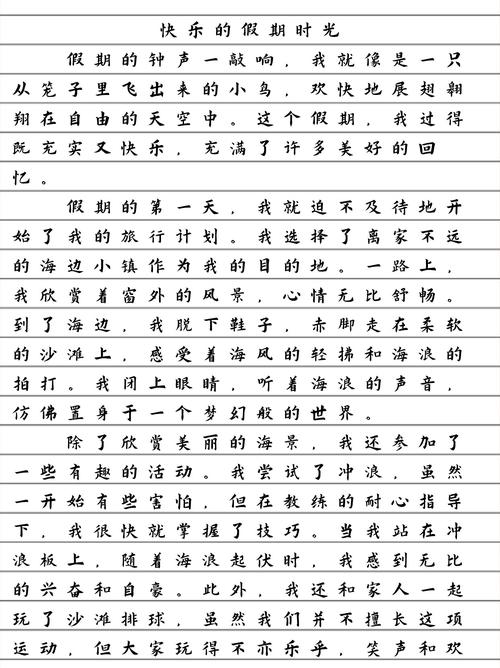 快乐的假期时光
假期的钟声一敲响，我就像是一只
从笼子里飞出来的小鸟，欢快地展翅翱
翔在自由的天空中。这个假期，我过得
既充实又快乐，充满了许多美好的回
忆。
假期的第一天，我就迫不及待地开
始了我的旅行计划。我选择了离家不远
的海边小镇作为我的目的地。一路上，
我欣赏着窗外的风景，心情无比舒畅。
到了海边，我脱下鞋子，赤脚走在柔软
的沙滩上，感受着海风的轻拂和海浪的
拍打。我闭上眼睛，听着海浪的声音，
仿佛置身于一个梦幻般的世界。
除了欣赏美丽的海景，我还参加了
一些有趣的活动。我尝试了冲浪，虽然
一开始有些害怕，但在教练的耐心指导
下，我很快就掌握了技巧。当我站在冲
浪板上，随着海浪起伏时，我感到无比
的兴奋和自豪。此外，我还和家人一起
玩了沙滩排球，虽然我们并不擅长这项
运动，但大家玩得不亦乐乎，笑声和欢